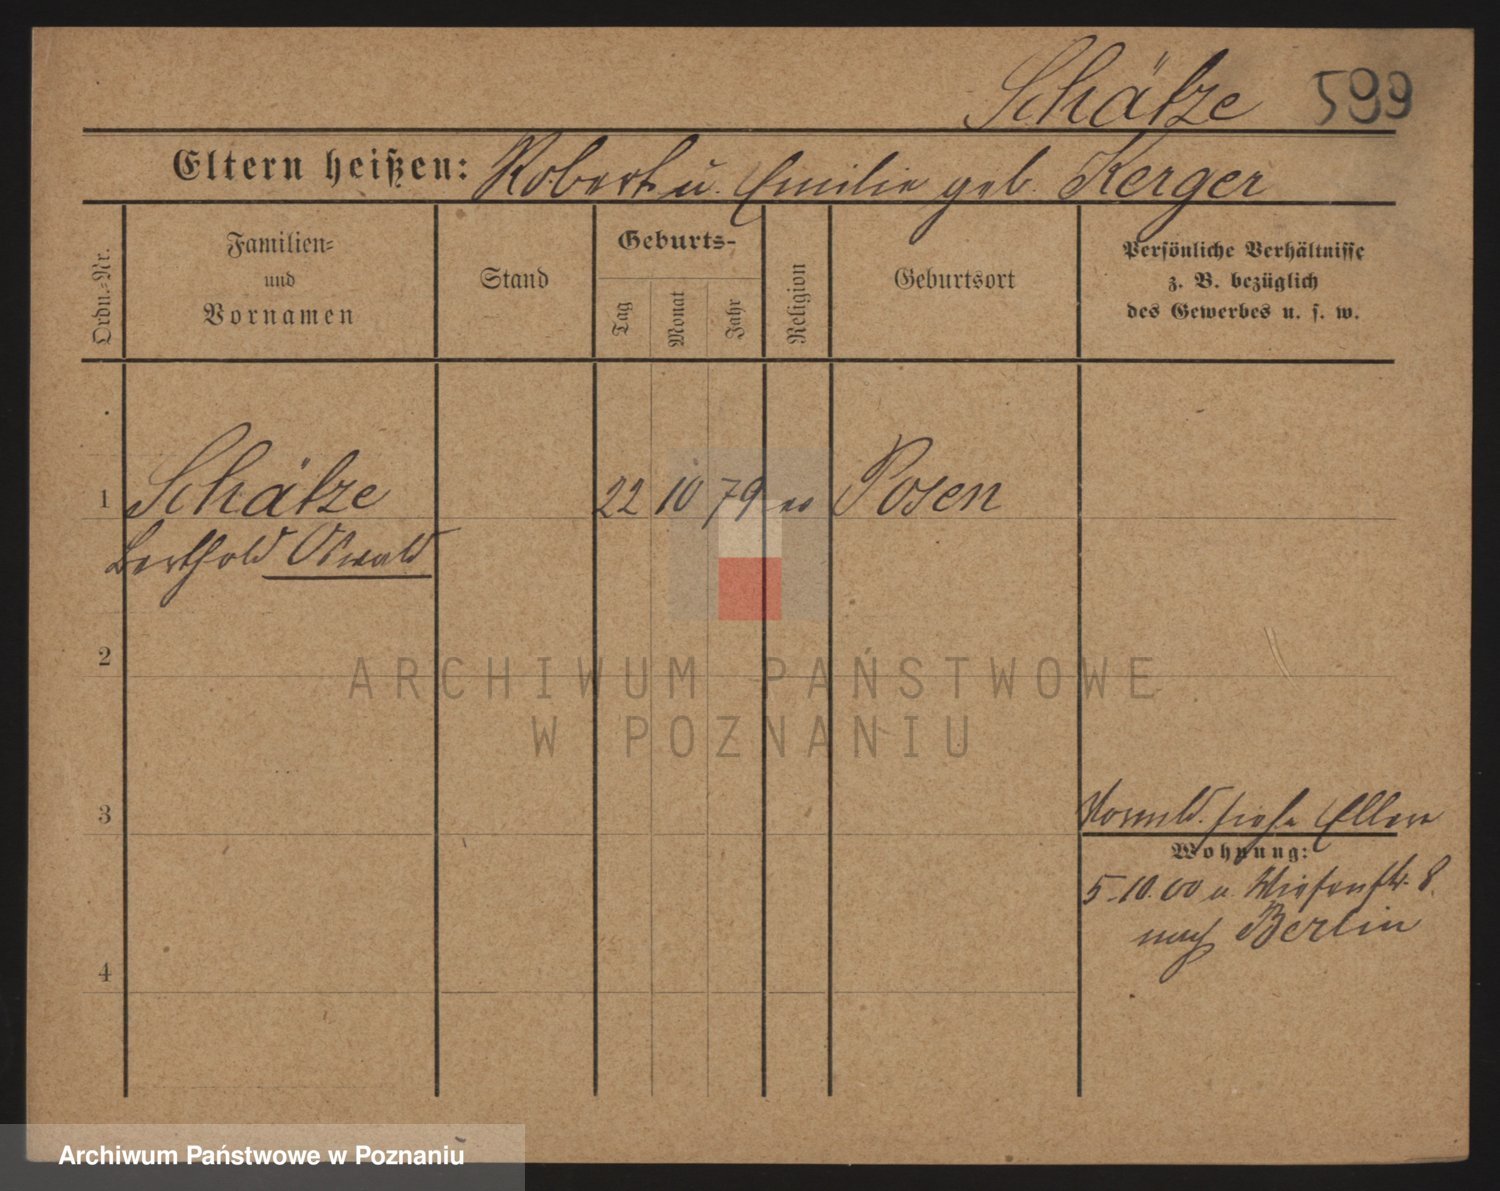 Schätze 599
Eltern heißen: Robert u. Emilie geb. Kerger
Ordn.-Nr.
Familien-
und
Vornamen
Stand
Geburts-
Tag
Monat
Jahr
Religion
Geburtsort
Persönliche Verhältnisse
z. B. bezüglich
des Gewerbes u. s. w.
1 Schätze 22 10 79 ev Posen
Berthold Oswald
2
ARCHIWUM PAŃSTWOWE
W POZNANIU
3
siehe Eltern
Wohnung:
5.10.00 v. Wiesenstr. 8.
nach Berlin
4
Archiwum Państwowe w Poznaniu